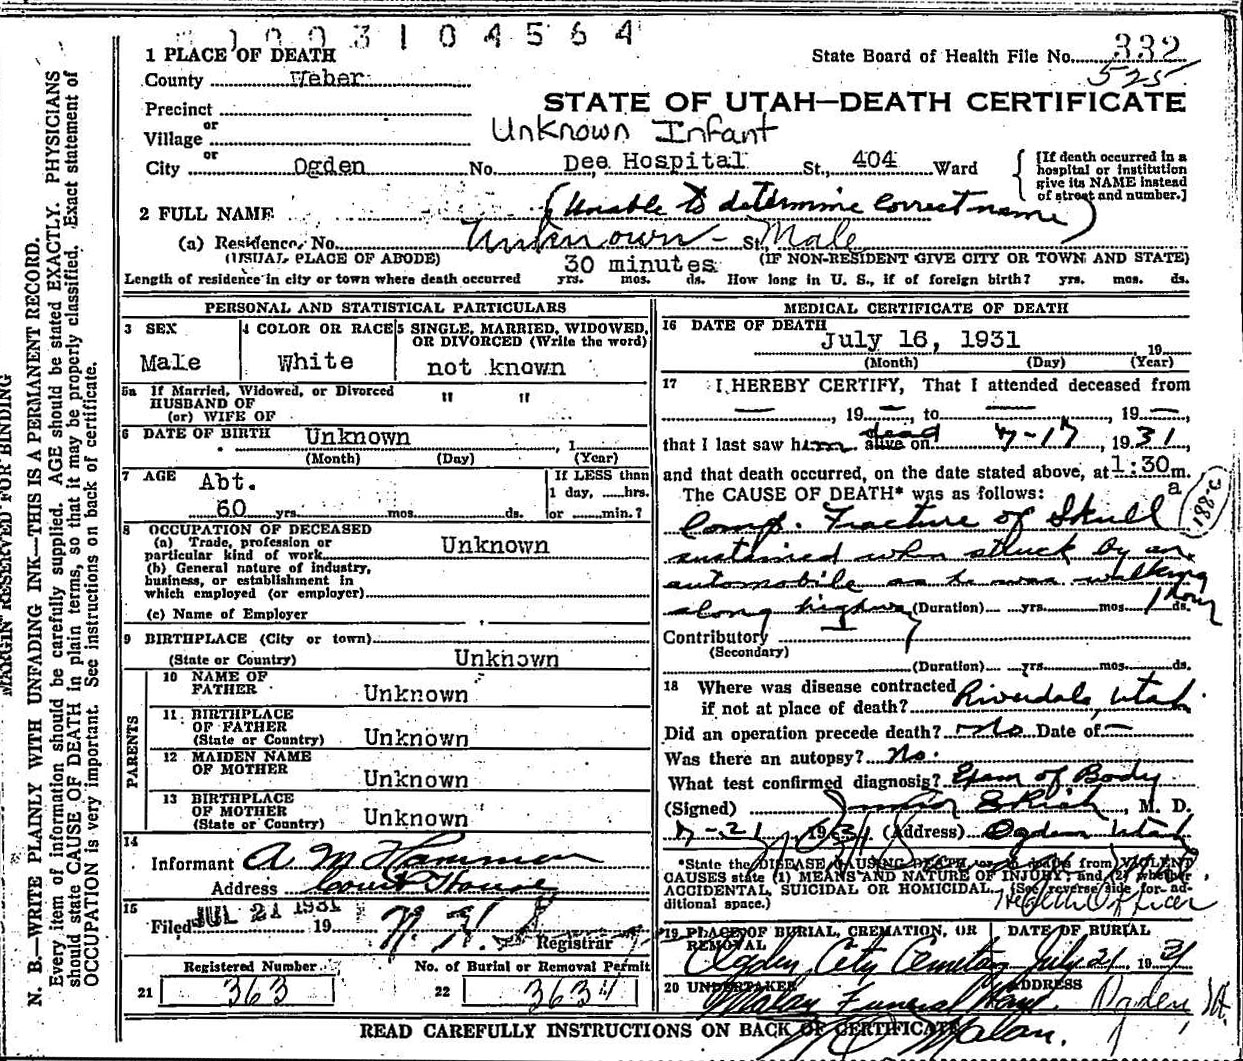 1003104564
1 PLACE OF DEATH
State Board of Health File No. 332
525
County Weber
STATE OF UTAH—DEATH CERTIFICATE
Precinct
or
Village
Unknown Infant
or
City Ogden No. Dee Hospital St., 404 Ward
[If death occurred in a hospital or institution give its NAME instead of street and number.]
2 FULL NAME (Unable to determine correct name)
(a) Residence, No. Unknown - St. Male
(USUAL PLACE OF ABODE) 30 minutes (IF NON-RESIDENT GIVE CITY OR TOWN AND STATE)
Length of residence in city or town where death occurred yrs. mos. ds. How long in U. S., if of foreign birth? yrs. mos. ds.
PERSONAL AND STATISTICAL PARTICULARS
3 SEX
Male
4 COLOR OR RACE
White
5 SINGLE, MARRIED, WIDOWED, OR DIVORCED (Write the word)
not known
5a If Married, Widowed, or Divorced
HUSBAND OF " "
(or) WIFE OF
6 DATE OF BIRTH Unknown , 1
(Month) (Day) (Year)
7 AGE Abt.
60 yrs. mos. ds.
If LESS than
1 day, hrs.
or min.?
8 OCCUPATION OF DECEASED
(a) Trade, profession or
particular kind of work Unknown
(b) General nature of industry,
business, or establishment in
which employed (or employer)
(c) Name of Employer
9 BIRTHPLACE (City or town)
(State or Country) Unknown
PARENTS
10 NAME OF
FATHER Unknown
11 BIRTHPLACE
OF FATHER
(State or Country) Unknown
12 MAIDEN NAME
OF MOTHER Unknown
13 BIRTHPLACE
OF MOTHER
(State or Country) Unknown
14
Informant A M Hammon
Address Court House
15
Filed JUL 21 1931 19
Registrar
Registered Number
21 363
No. of Burial or Removal Permit
22 3634
MEDICAL CERTIFICATE OF DEATH
16 DATE OF DEATH
July 16, 1931 19
(Month) (Day) (Year)
17 I HEREBY CERTIFY, That I attended deceased from
— , 19 — , to — 19 — ,
that I last saw him alive on dead 7-17 , 1931
and that death occurred, on the date stated above, at 1:30 m.
a
The CAUSE OF DEATH* was as follows:
188c
Comp. Fracture of Skull
sustained when struck by an
automobile as he was walking
along highway (Duration) yrs. mos. 1 hour ds.
Contributory
(Secondary)
(Duration) yrs. mos. ds.
18 Where was disease contracted
if not at place of death? Riverdale, Utah
Did an operation precede death? No Date of —
Was there an autopsy? No.
What test confirmed diagnosis? Exam of Body
(Signed) Junior E Rich , M. D.
7-21 , 1931 (Address) Ogden Utah
*State the DISEASE CAUSING DEATH, or in deaths from VIOLENT
CAUSES state (1) MEANS AND NATURE OF INJURY; and (2) whether
ACCIDENTAL, SUICIDAL OR HOMICIDAL. (See reverse side for additional space.)
Health Officer
19 PLACE OF BURIAL, CREMATION, OR REMOVAL
Ogden City Cemetery
DATE OF BURIAL
July 21 1931
20 UNDERTAKER
Malan Funeral Home
ADDRESS
Ogden, Ut.
Malan.
READ CAREFULLY INSTRUCTIONS ON BACK OF CERTIFICATE
MARGIN RESERVED FOR BINDING
N. B.—WRITE PLAINLY WITH UNFADING INK—THIS IS A PERMANENT RECORD.
Every item of information should be carefully supplied. AGE should be stated EXACTLY. PHYSICIANS
should state CAUSE OF DEATH in plain terms, so that it may be properly classified. Exact statement of
OCCUPATION is very important. See instructions on back of certificate.